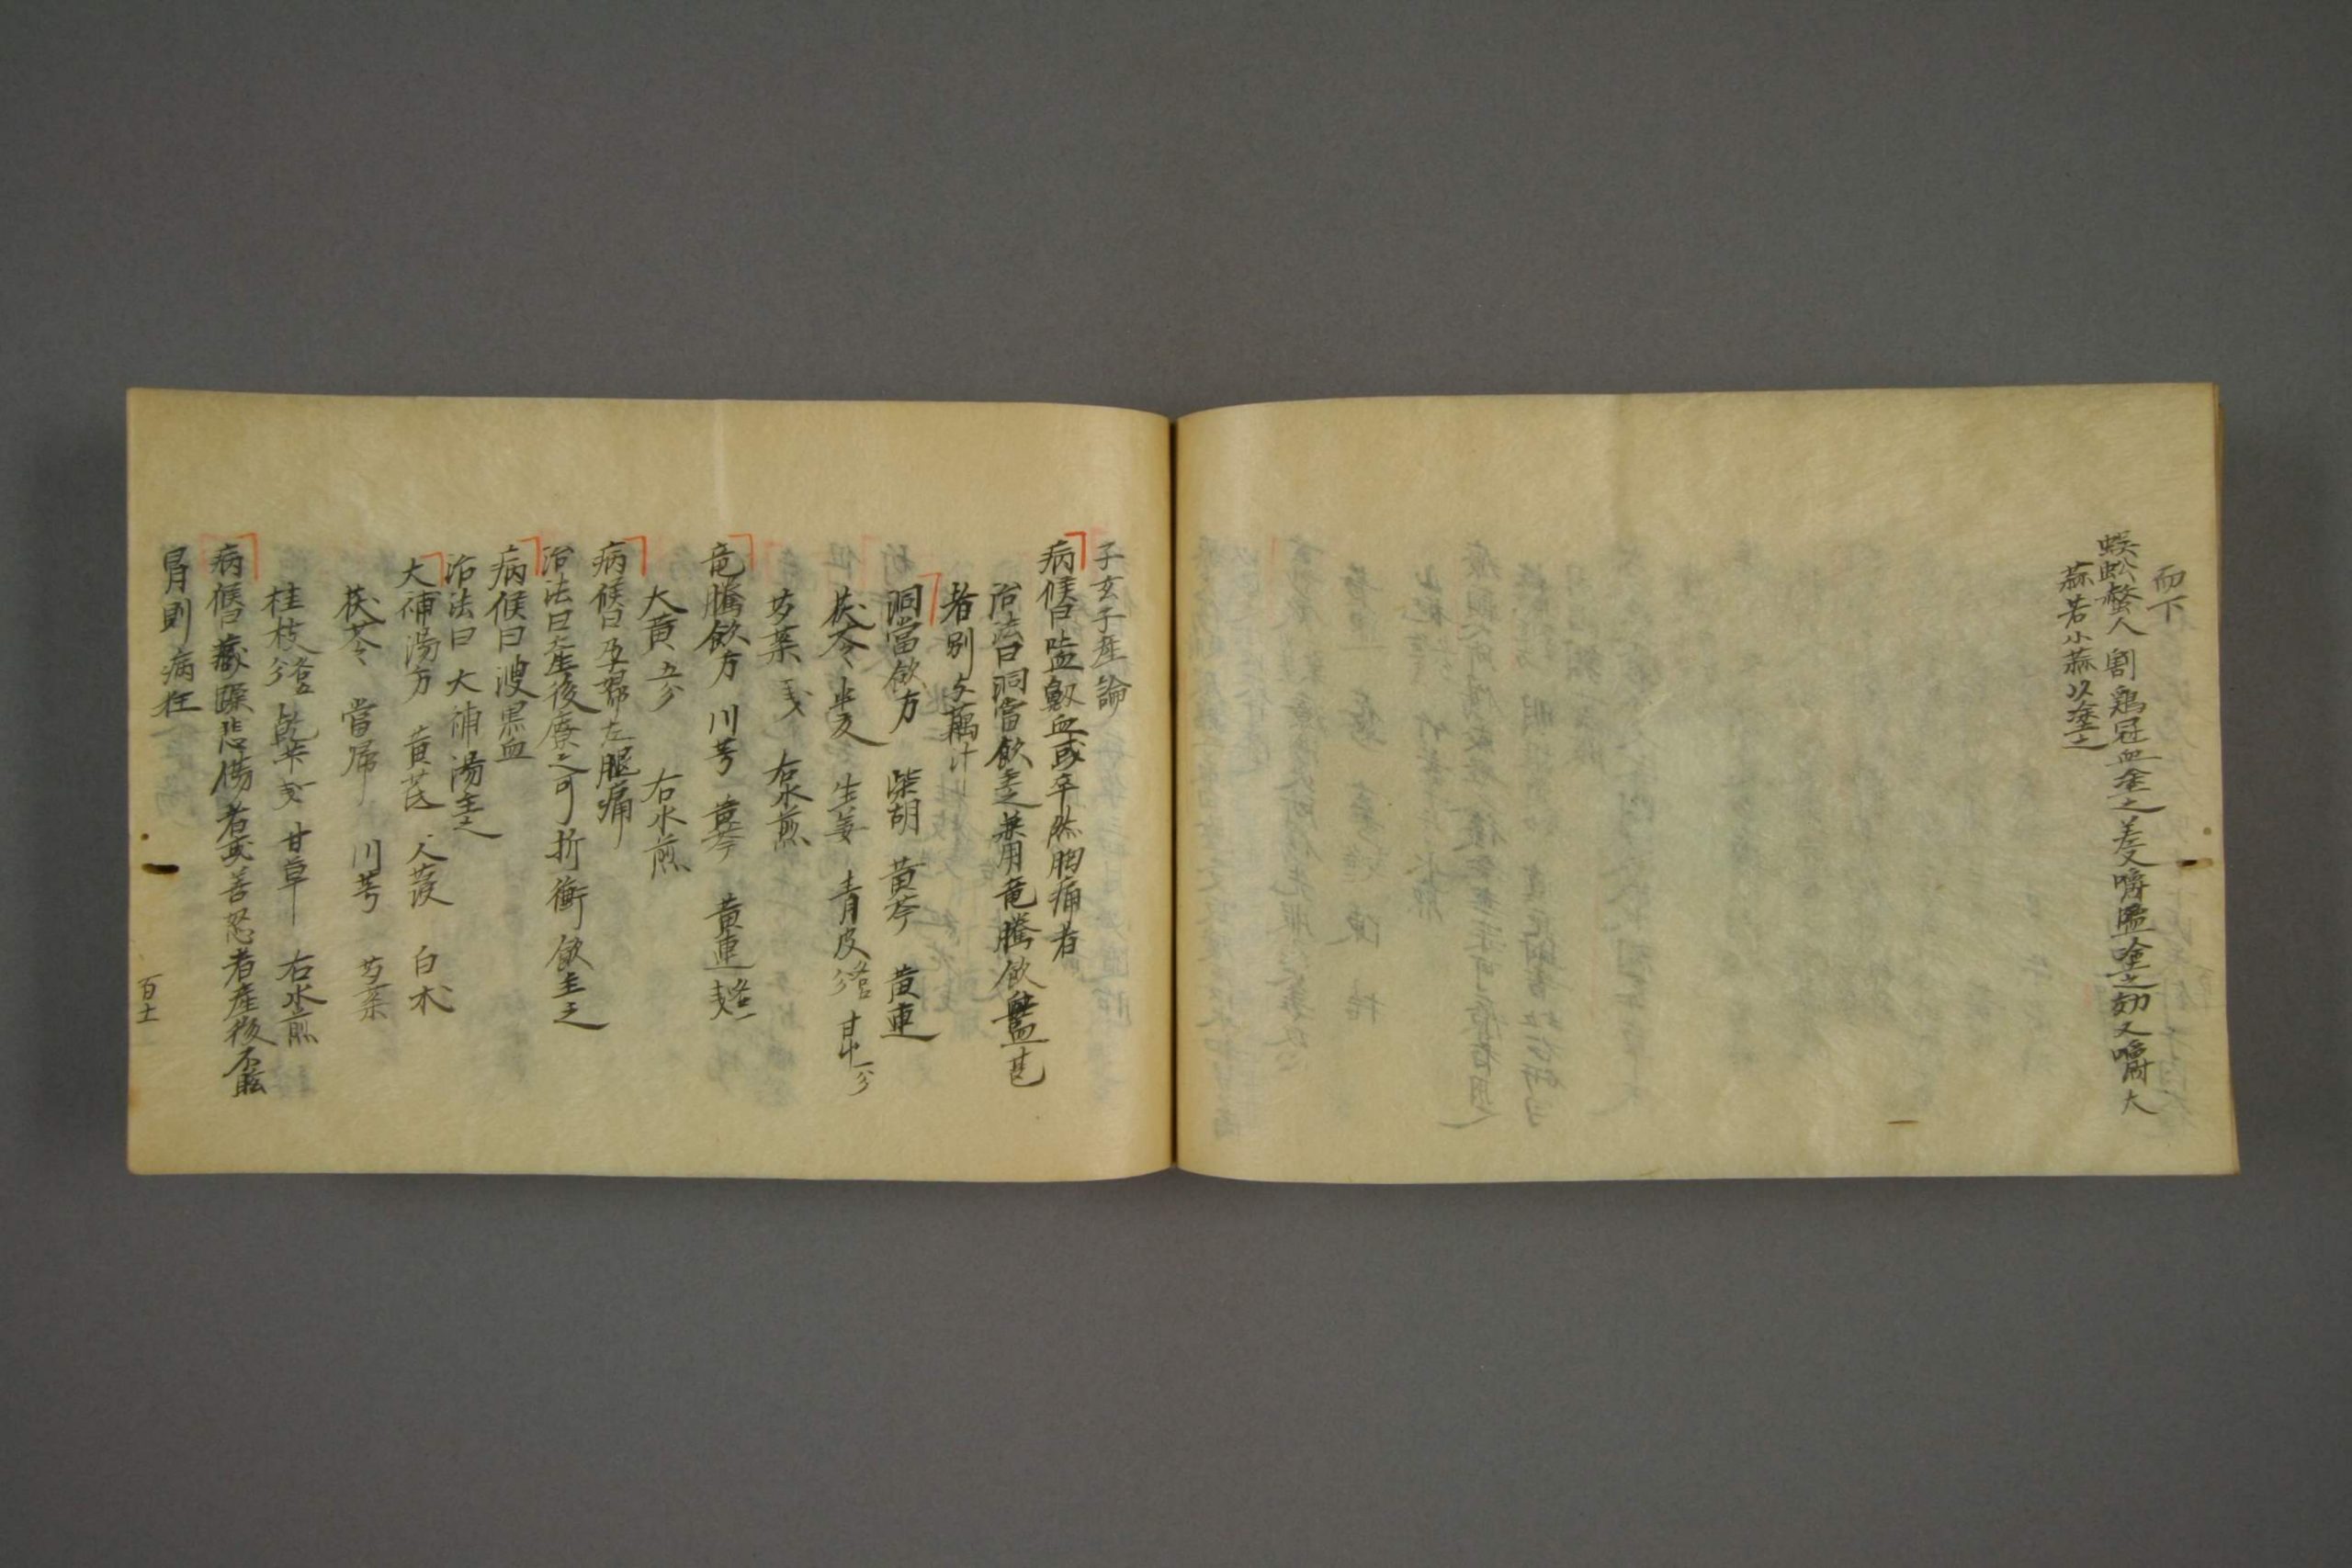 而下
蜈蚣螫人割鶏冠血塗之差又嚼塩塗之効又嚼大
蒜若小蒜以塗之
子玄子産論
病候曰 衂血或卒然胸痛者
治法曰洞當飲主之兼用竜騰飲 甚
者別与藕汁
洞當飲方 柴胡 黄芩 黄連
茯苓 半夏 生姜 青皮 甘中一分
芍薬 右水煎
竜騰飲方 川芎 黄芩 黄連
大黄五分 右水煎
病候曰孕婦左腿痛
治法曰産後療之可折衝飲主之
病候曰溲黒血
治法曰大補湯主之
大補湯方 黄芪 人葠 白朮
茯苓 當帰 川芎 芍薬
桂枝 乾 甘草 右水煎
病候曰藏躁悲傷若或善怒者産後
冒則病狂
百十一